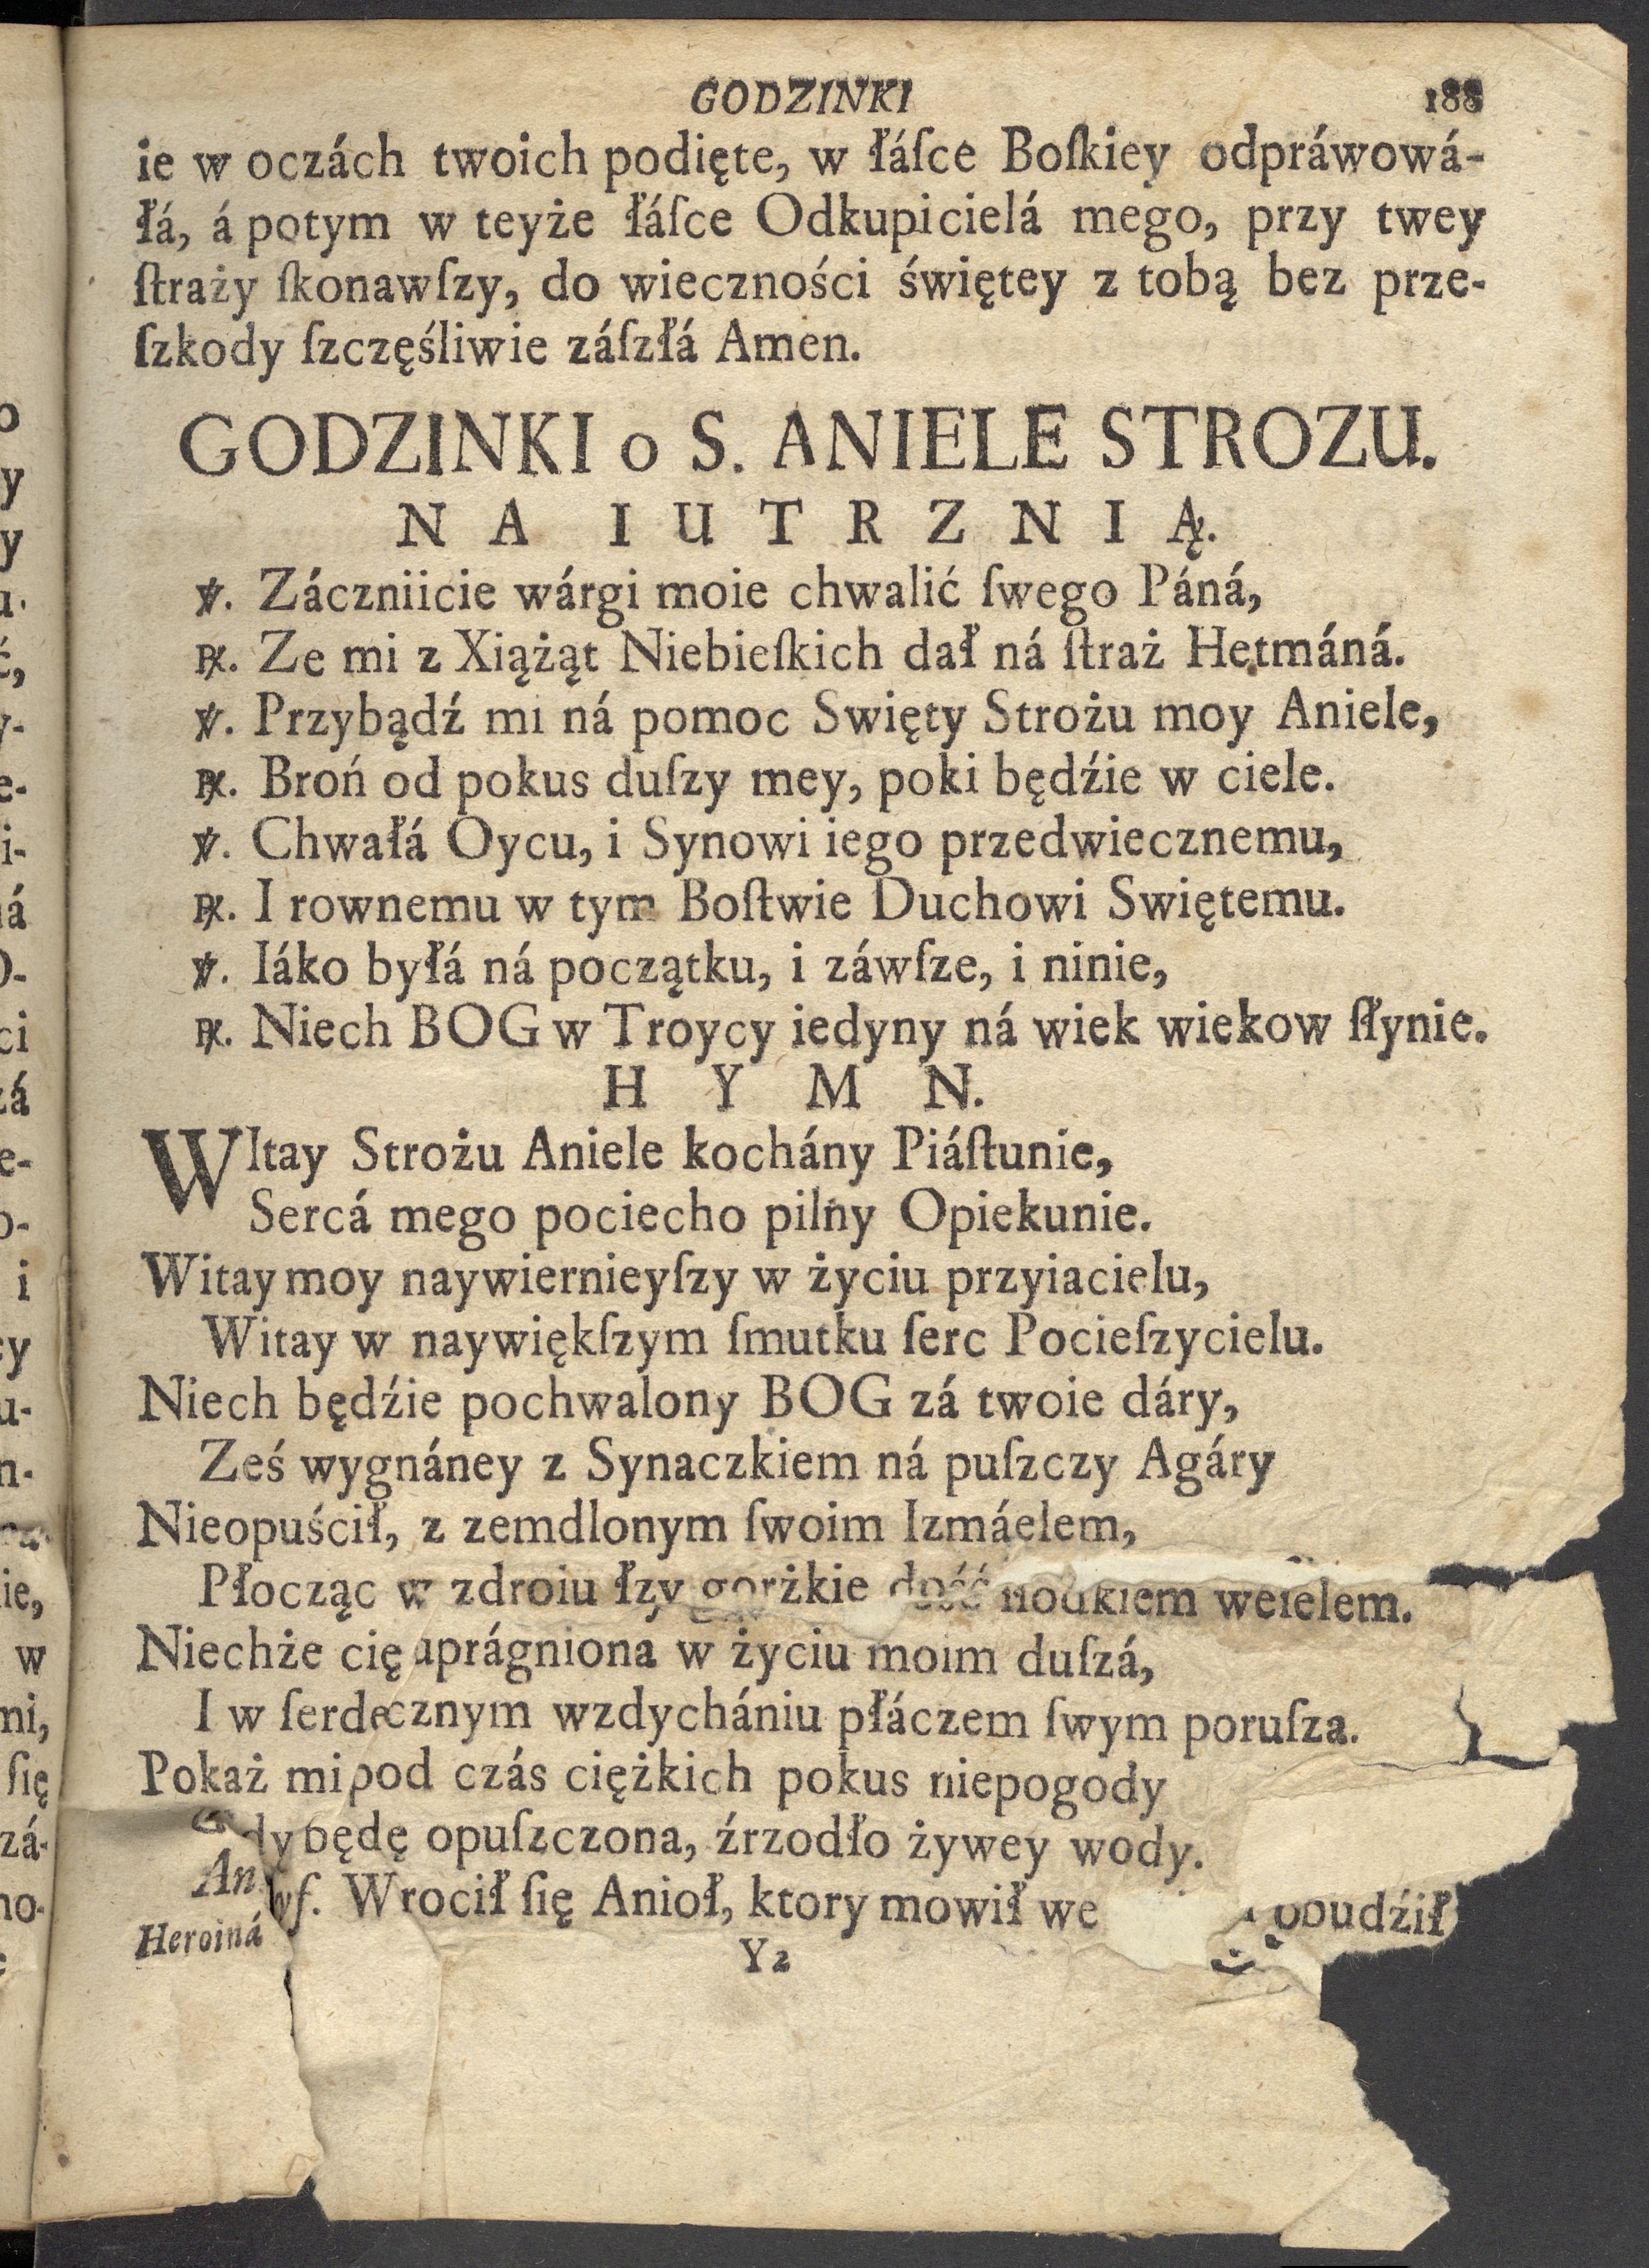 GODZINKI 188
ie w oczách twoich podięte, w łáſce Boſkiey odpráwowá-
łá, á potym w teyże łáſce Odkupicielá mego, przy twey
ſtraży ſkonawſzy, do wieczności świętey z tobą bez prze-
ſzkody ſzczęśliwie záſzłá Amen.
GODZINKI o S. ANIELE STROZU.
NA IUTRZNIĄ.
℣. Záczniicie wárgi moie chwalić ſwego Páná,
℟. Ze mi z Xiążąt Niebieſkich dał ná ſtraż Hetmáná.
℣. Przybądź mi ná pomoc Swięty Strożu moy Aniele,
℟. Broń od pokus duſzy mey, poki będźie w ciele.
℣. Chwałá Oycu, i Synowi iego przedwiecznemu,
℟. I rownemu w tym Boſtwie Duchowi Swiętemu.
℣. Iáko byłá ná początku, i záwſze, i ninie,
℟. Niech BOG w Troycy iedyny ná wiek wiekow ſłynie.
HYMN.
WItay Strożu Aniele kochány Piáſtunie,
Sercá mego pociecho pilny Opiekunie.
Witay moy naywiernieyſzy w życiu przyiacielu,
Witay w naywiękſzym ſmutku ſerc Pocieſzycielu.
Niech będźie pochwalony BOG zá twoie dáry,
Ześ wygnáney z Synaczkiem ná puſzczy Agáry
Nieopuścił, z zemdlonym ſwoim Izmáelem,
Płocząc w zdroiu łzy gorżkie dość weſelem.
Niechże cię uprágniona w życiu moim duſzá,
I w ſerdecznym wzdychániu płáczem ſwym poruſza.
Pokaż mi pod czás ciężkich pokus niepogody
Gdy będę opuſzczona, źrzodło żywey wody.
Wrocił ſię Anioł, ktory mowił we obudźił
Heroiná Y2